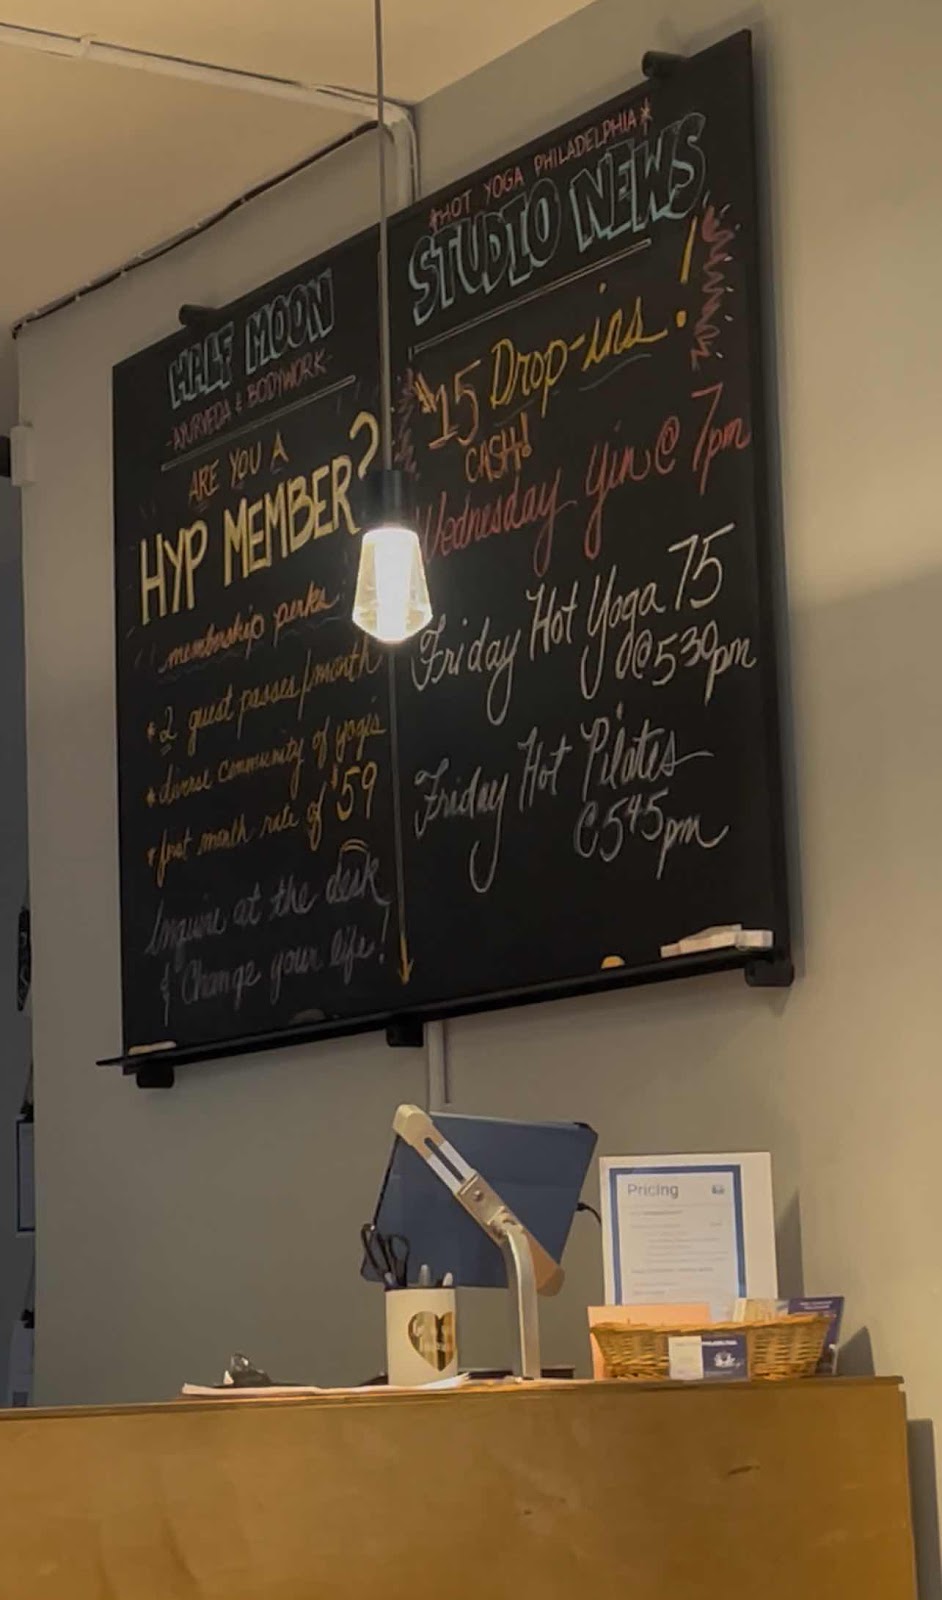 HALF MOON
-AYURVEDA & BODYWORK-
ARE YOU A
HYP MEMBER?
membership perks
* 2 guest passes/month
* diverse community of yogis
* first month rate of $59
Inquire at the desk
& Change your life!
*HOT YOGA PHILADELPHIA*
STUDIO NEWS
$15 Drop-ins!
CASH!
Wednesday Yin @ 7pm
Friday Hot Yoga 75
@530pm
Friday Hot Pilates
@545pm
Pricing